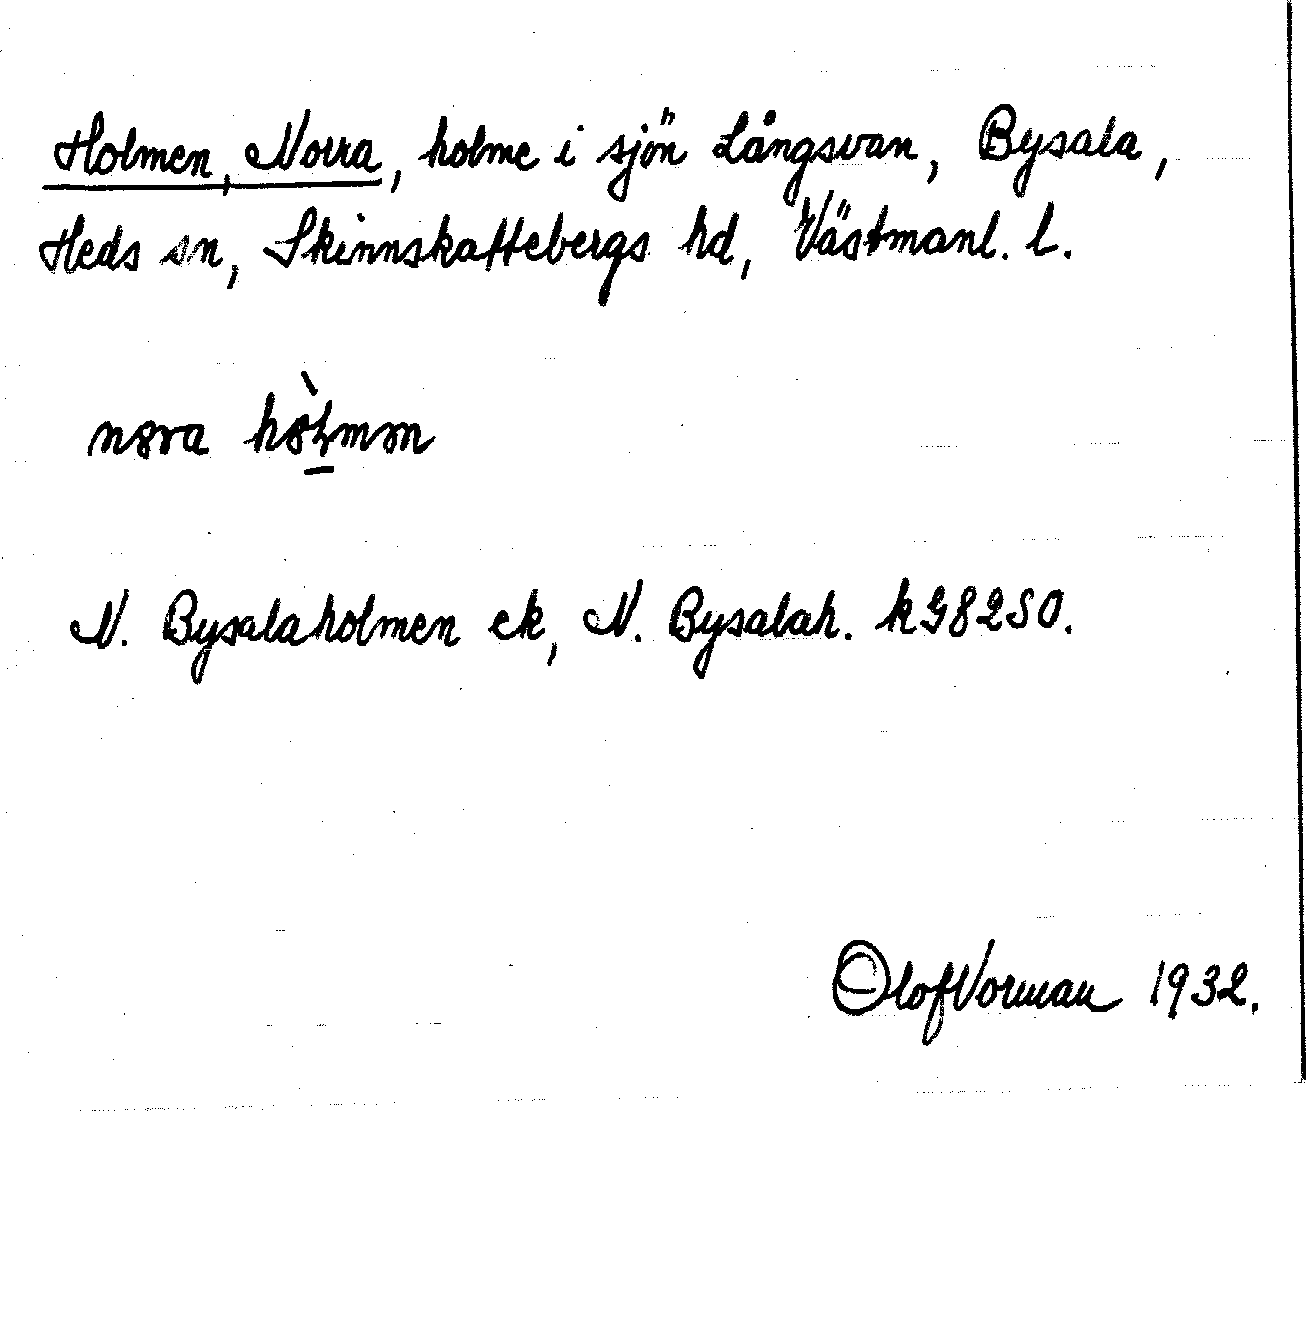 Holmen, Norra, holme i sjön Långsvan, Bysala,
Heds sn, Skinnskattebergs hd, Västmanl. l.
N. Bysalaholmen ek, N. Bysalah. k G8250.
Olof Vorman 1932.